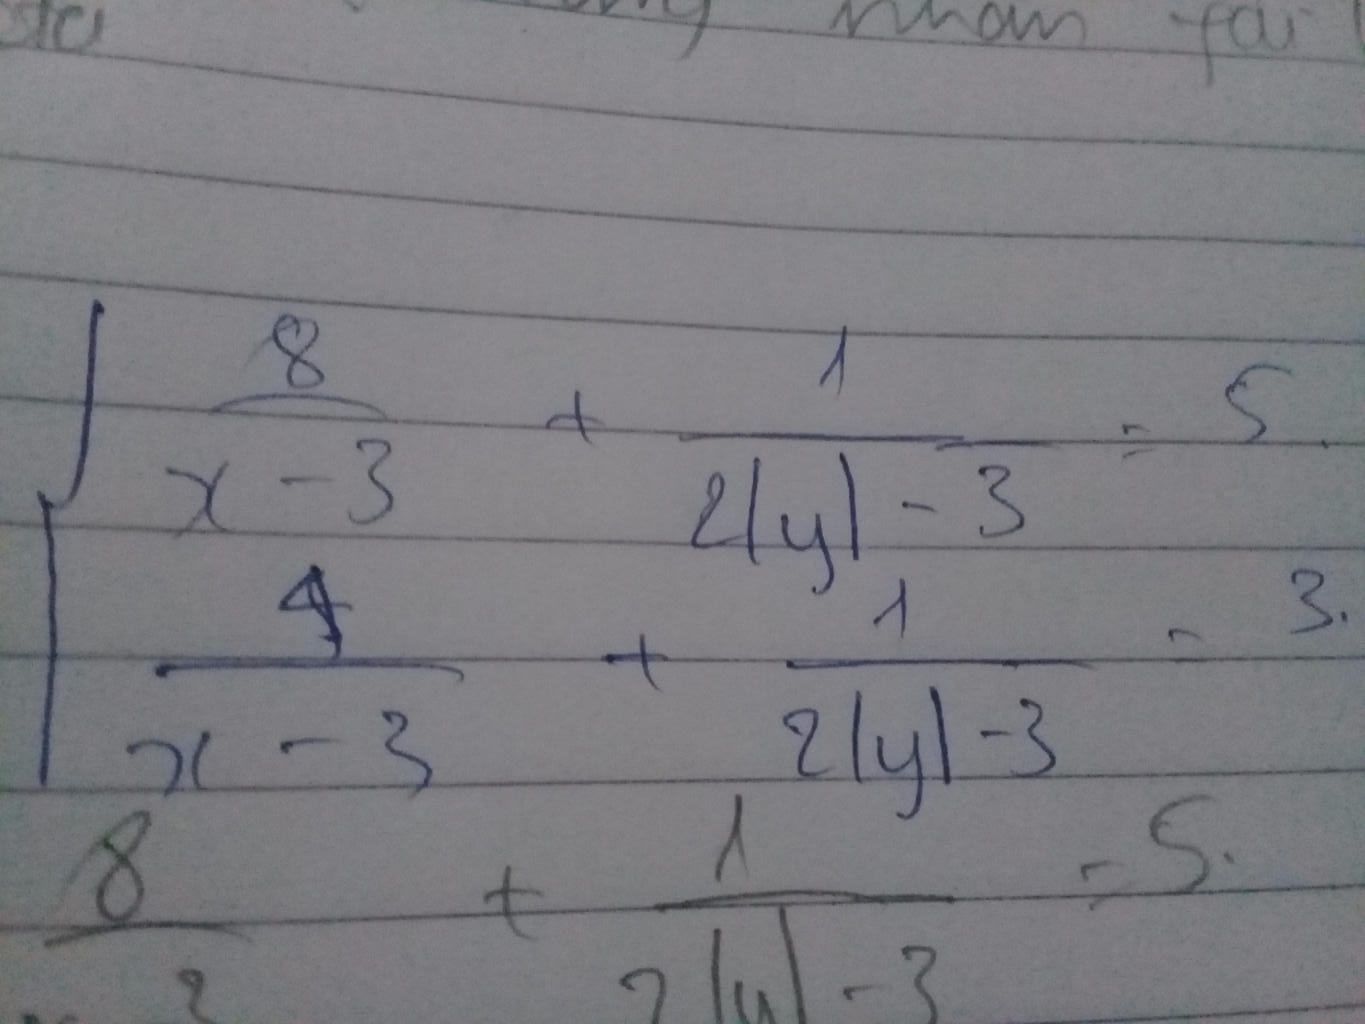 nhân
8/(x - 3) + 1/(2|y| - 3) = 5
4/(x - 3) + 1/(2|y| - 3) = 3.
8 + 1 = 5.
3 2|y| - 3